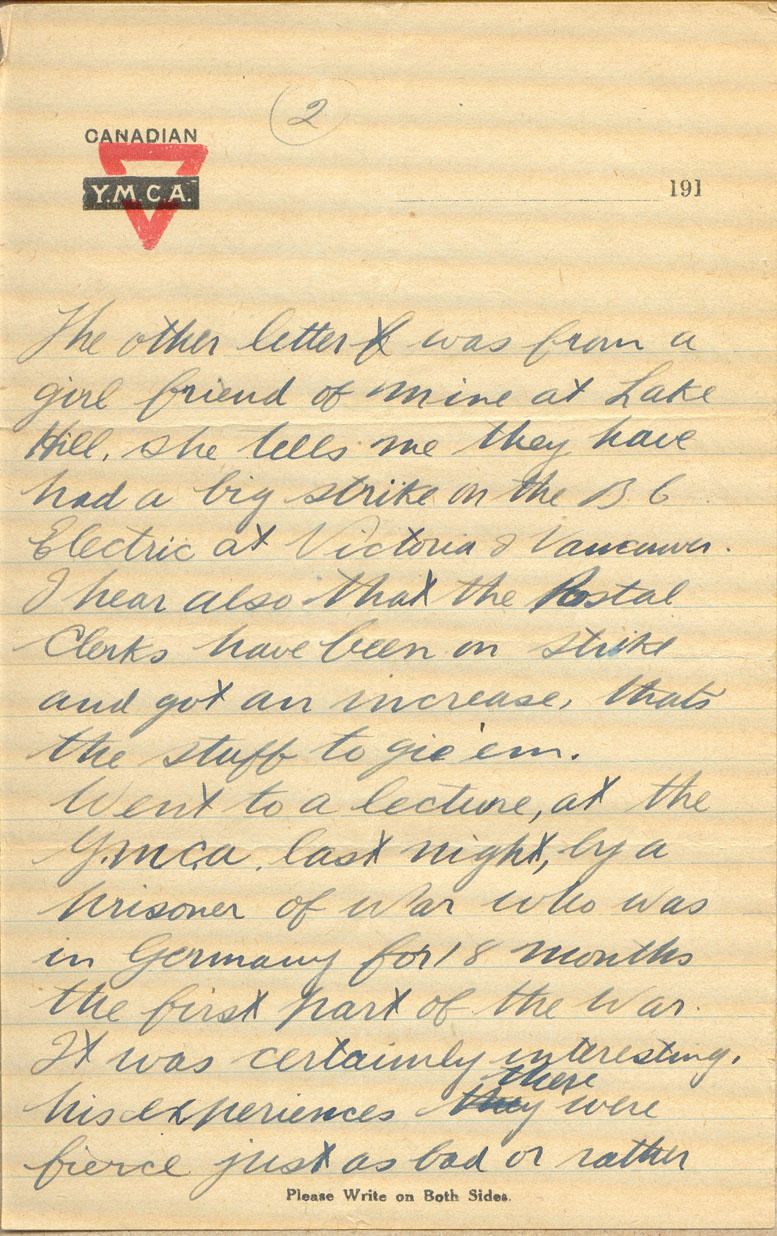 2
CANADIAN
Y.M.C.A.
191
The other letter was from a
girl friend of mine at Lake
Hill, she tells me they have
had a big strike on the B C
Electric at Victoria & Vancouver.
I hear also that the Postal
Clerks have been on strike
and got an increase, thats
the stuff to gie 'em.
Went to a lecture, at the
Y.M.C.A. last night, by a
prisoner of War who was
in Germany for 18 months
the first part of the War.
It was certainly interesting,
there
his experiences they were
fierce just as bad or rather
Please Write on Both Sides.